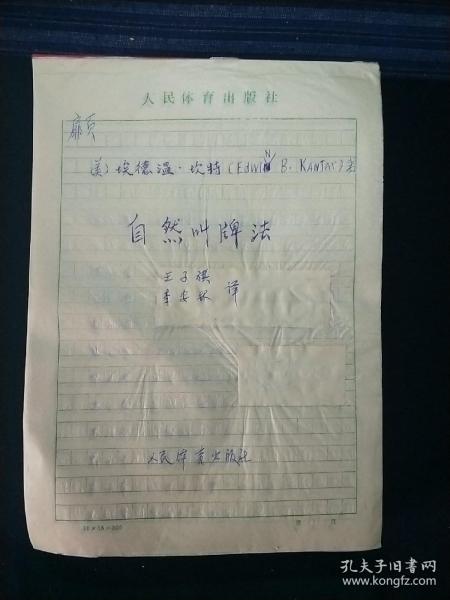 人民体育出版社
扉页
(美)埃德温·坎特(EdwiN B. KANTAR)著
自然叫牌法
王子旗
李安林 译
人民体育出版社
孔夫子旧书网
www.kongfz.com